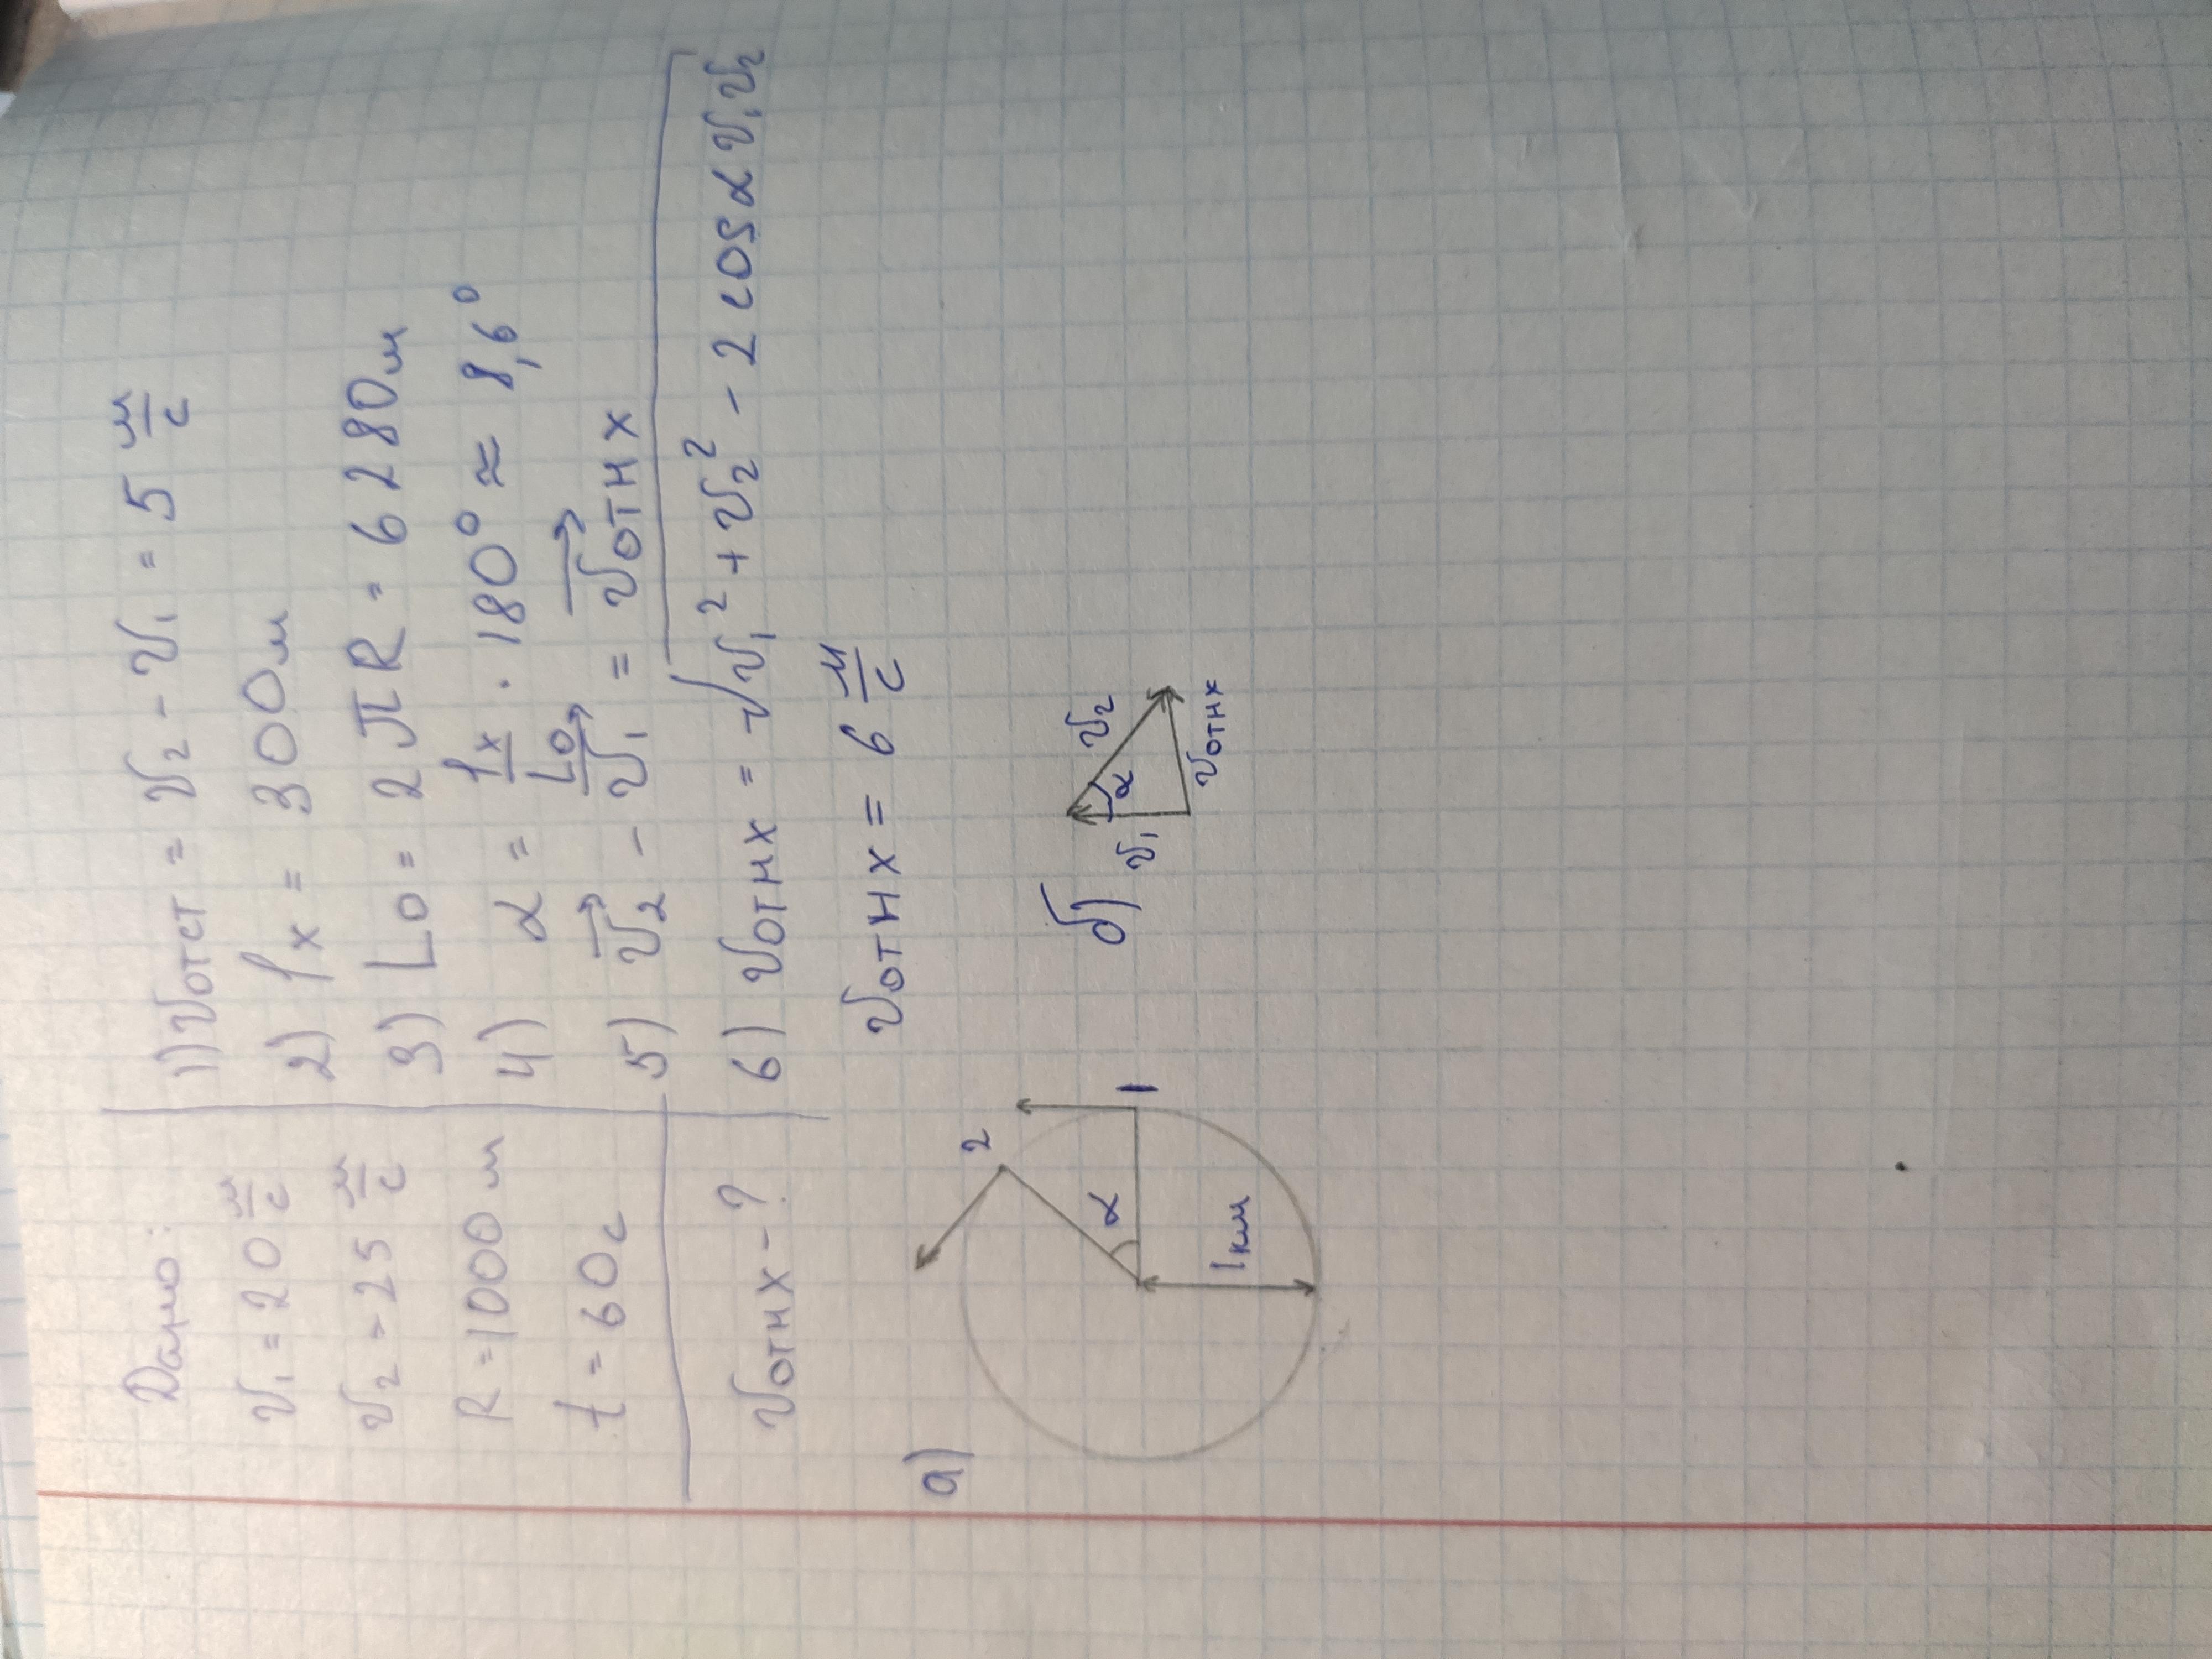 Дано:
v₁ = 20 м/с
v₂ = 25 м/с
R = 1000 м
t = 60 с
vотнх - ?
1) vотст = v₂ - v₁ = 5 м/с
2) lx = 300 м
3) Lо = 2πR = 6280 м
4) α = lx/Lо · 180° ≈ 8,6°
5) v₂→ - v₁→ = vотнх→
6) vотнх = √(v₁² + v₂² - 2 cosα v₁v₂)
vотнх = 6 м/с
а)
2
1
α
1км
б)
v₁
α
v₂
vотнх